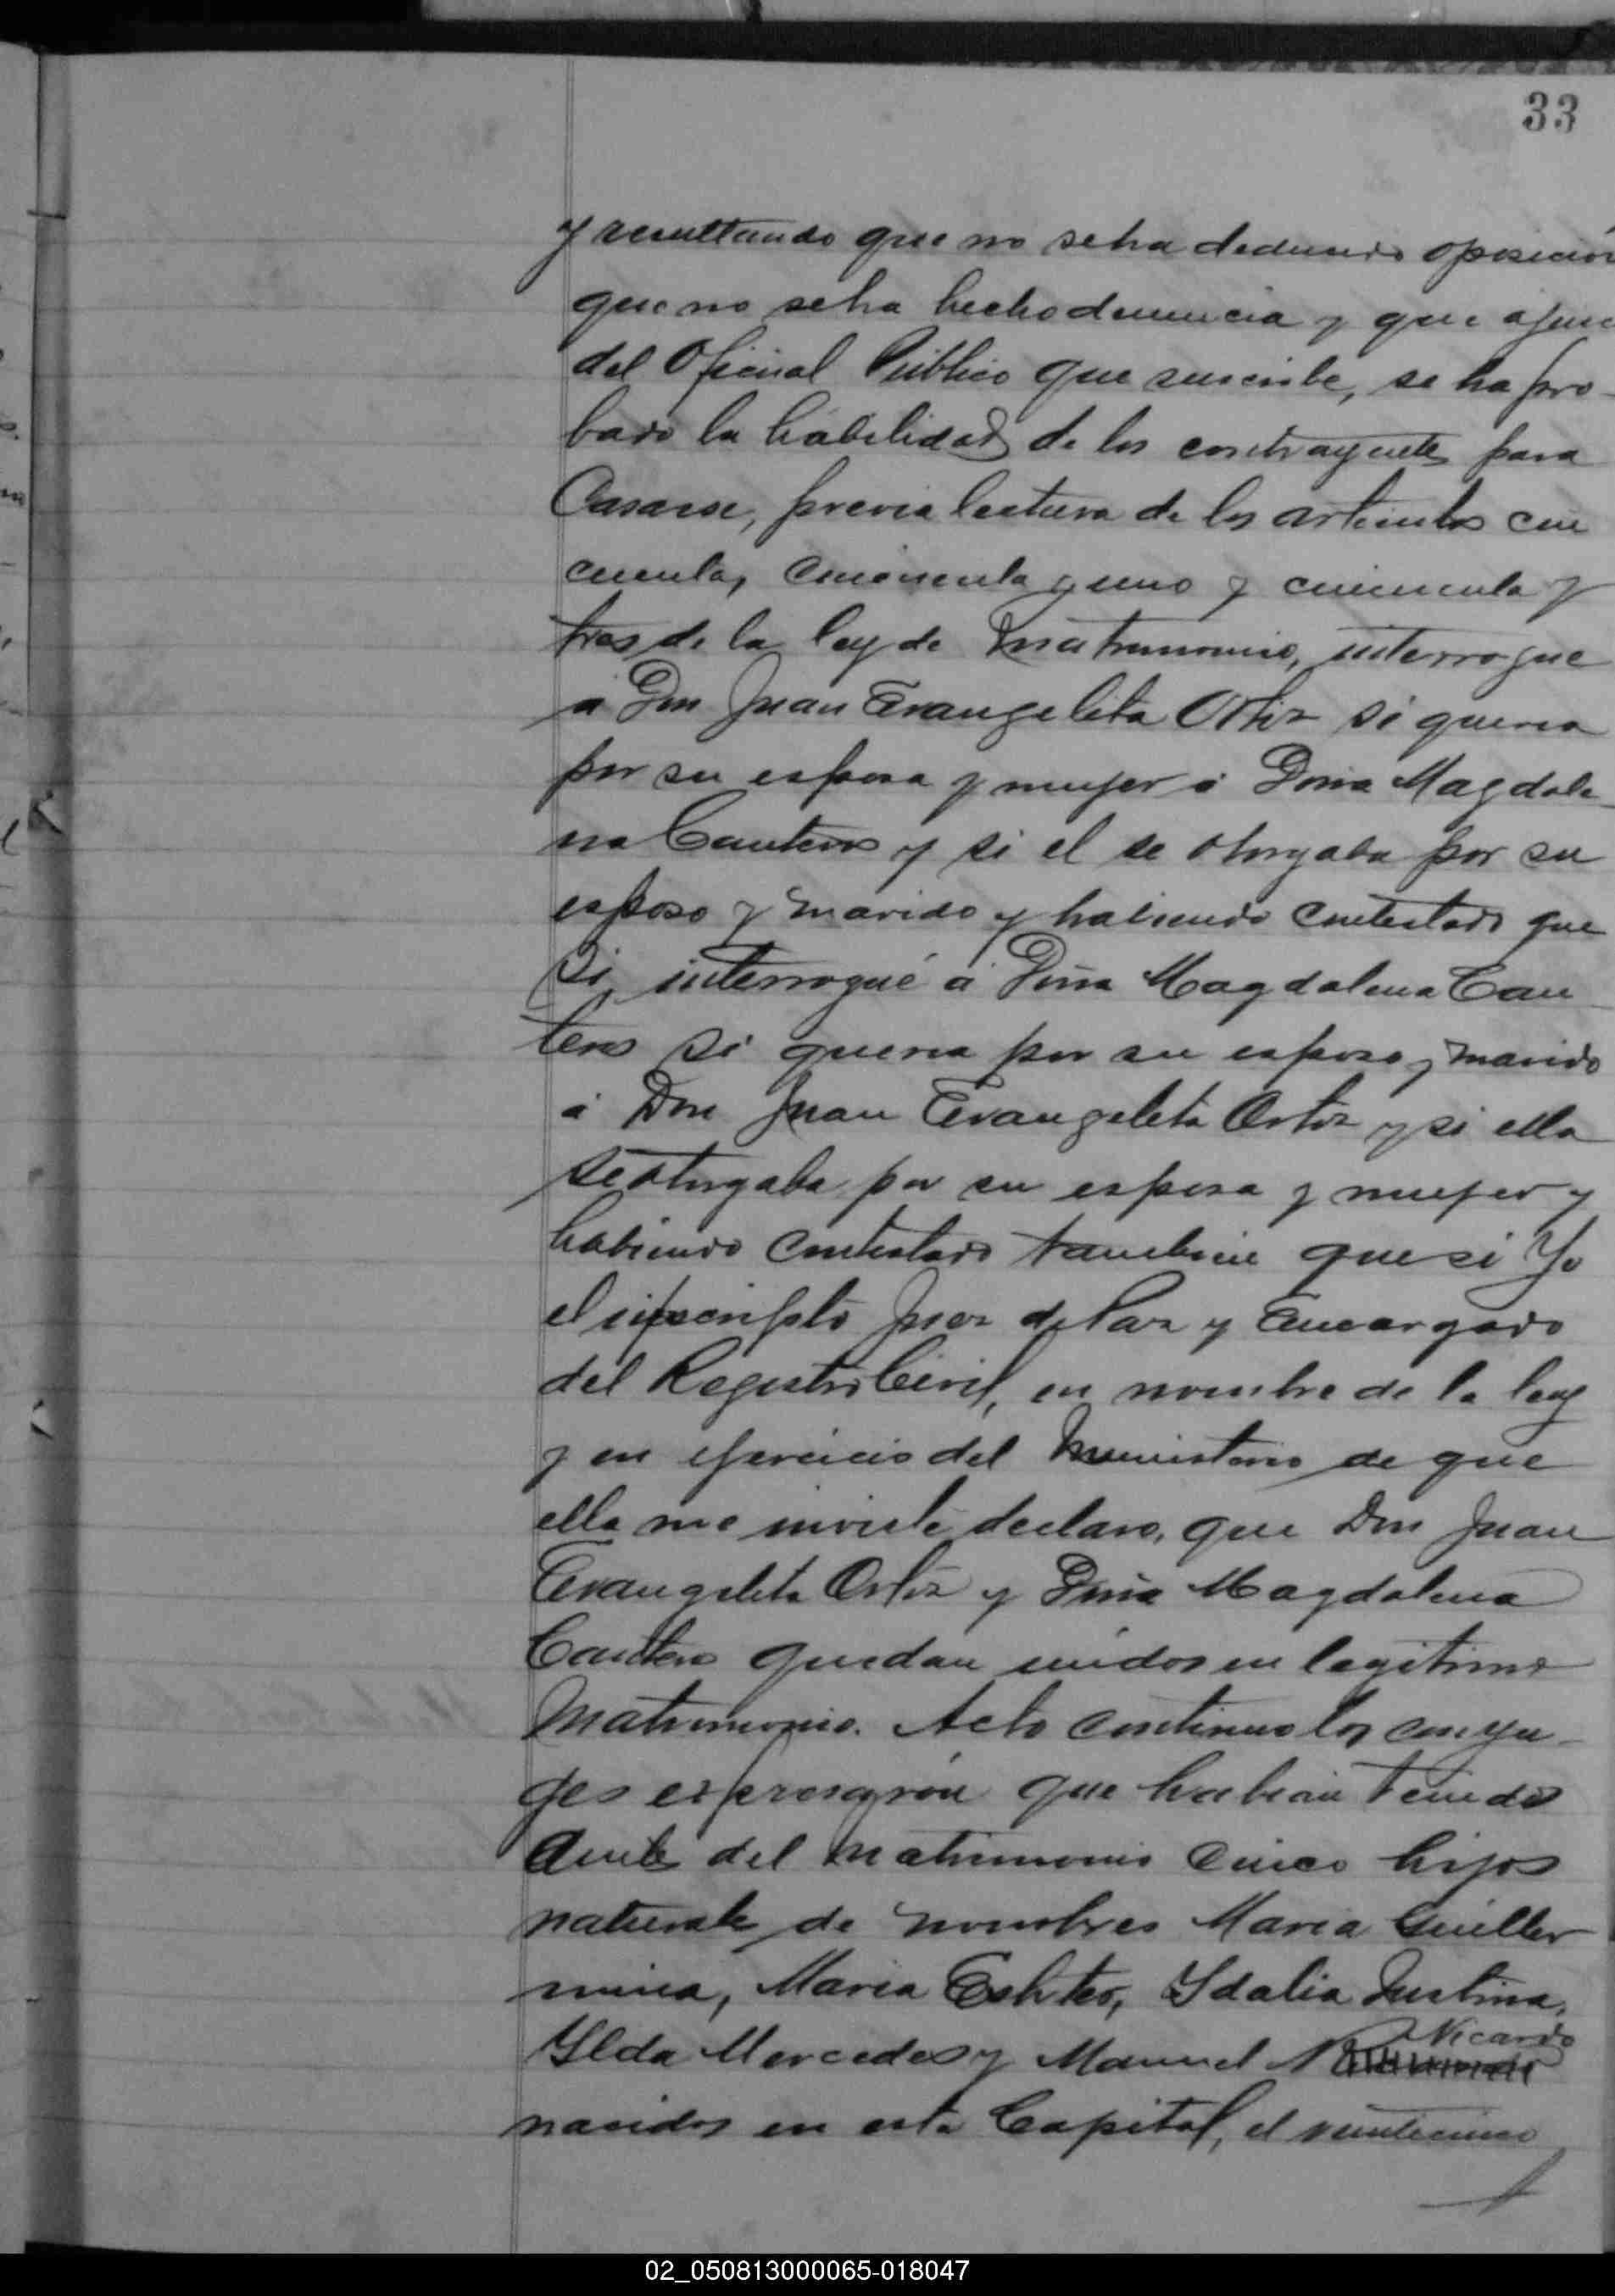 33
y resultando que no se ha deducido oposición
que no se ha hecho denuncia y que a juic
del Oficial Público que suscribe, se ha pro-
bado la habilidad de los contrayentes para
Casarse, previa lectura de los articulos cin
cuenta, cincuenta y uno y cincuenta y
tres de la ley de Matrimonio, interrogue
a Don Juan Evangelita Ortiz si queria
por su esposa y mujer á Doña Magdale-
na Cantero y si el se otorgaba por su
esposo y marido y habiendo contestado que
si, interrogué a Doña Magdalena Can
tero si queria por su esposo y marido
á Don Juan Evangelita Ortiz y si ella
se otorgaba por su esposa y mujer y
habiendo contestado tambien que si Yo
el infrascripto Juez de Paz y Encargado
del Registro Civil, en nombre de la ley
y en ejercicio del Ministerio de que
ella me inviste declaro, que Don Juan
Evangelita Ortiz y Doña Magdalena
Cantero quedan unidos en legitimo
Matrimonio. Acto continuo los conyu-
ges expresaron que habian tenido
antes del matrimonio cinco hijos
naturales de nombres Maria Guiller
mina, Maria Eshter, Ydalia Justina,
Nicardo
Ylda Mercedes y Manuel
nacidos en esta Capital, el veinticinco
02_050813000065-018047